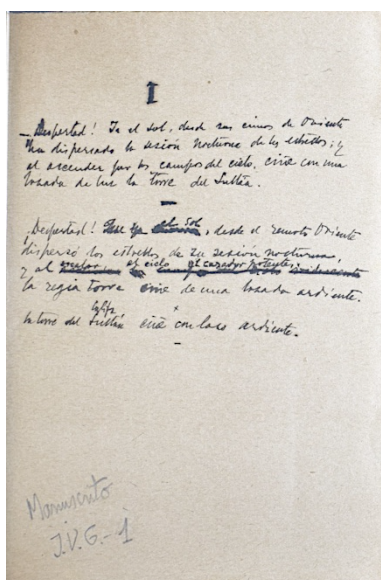 I
¡Despertad! Ya el sol, desde las cimas de Oriente
ha dispersado la sesión nocturna de las estrellas; y
al ascender por los campos del cielo, ciñe con una
lazada de luz la torre del Sultán.
¡Despertad! ya el Sol, desde el remoto Oriente
dispersó las estrellas de su sesión nocturna,
y al el cielo
la regia torre ciñe de una lazada ardiente.
Califa
la torre del Sultán ciñe con lazo ardiente.
Manuscrito
J.V.G.-1